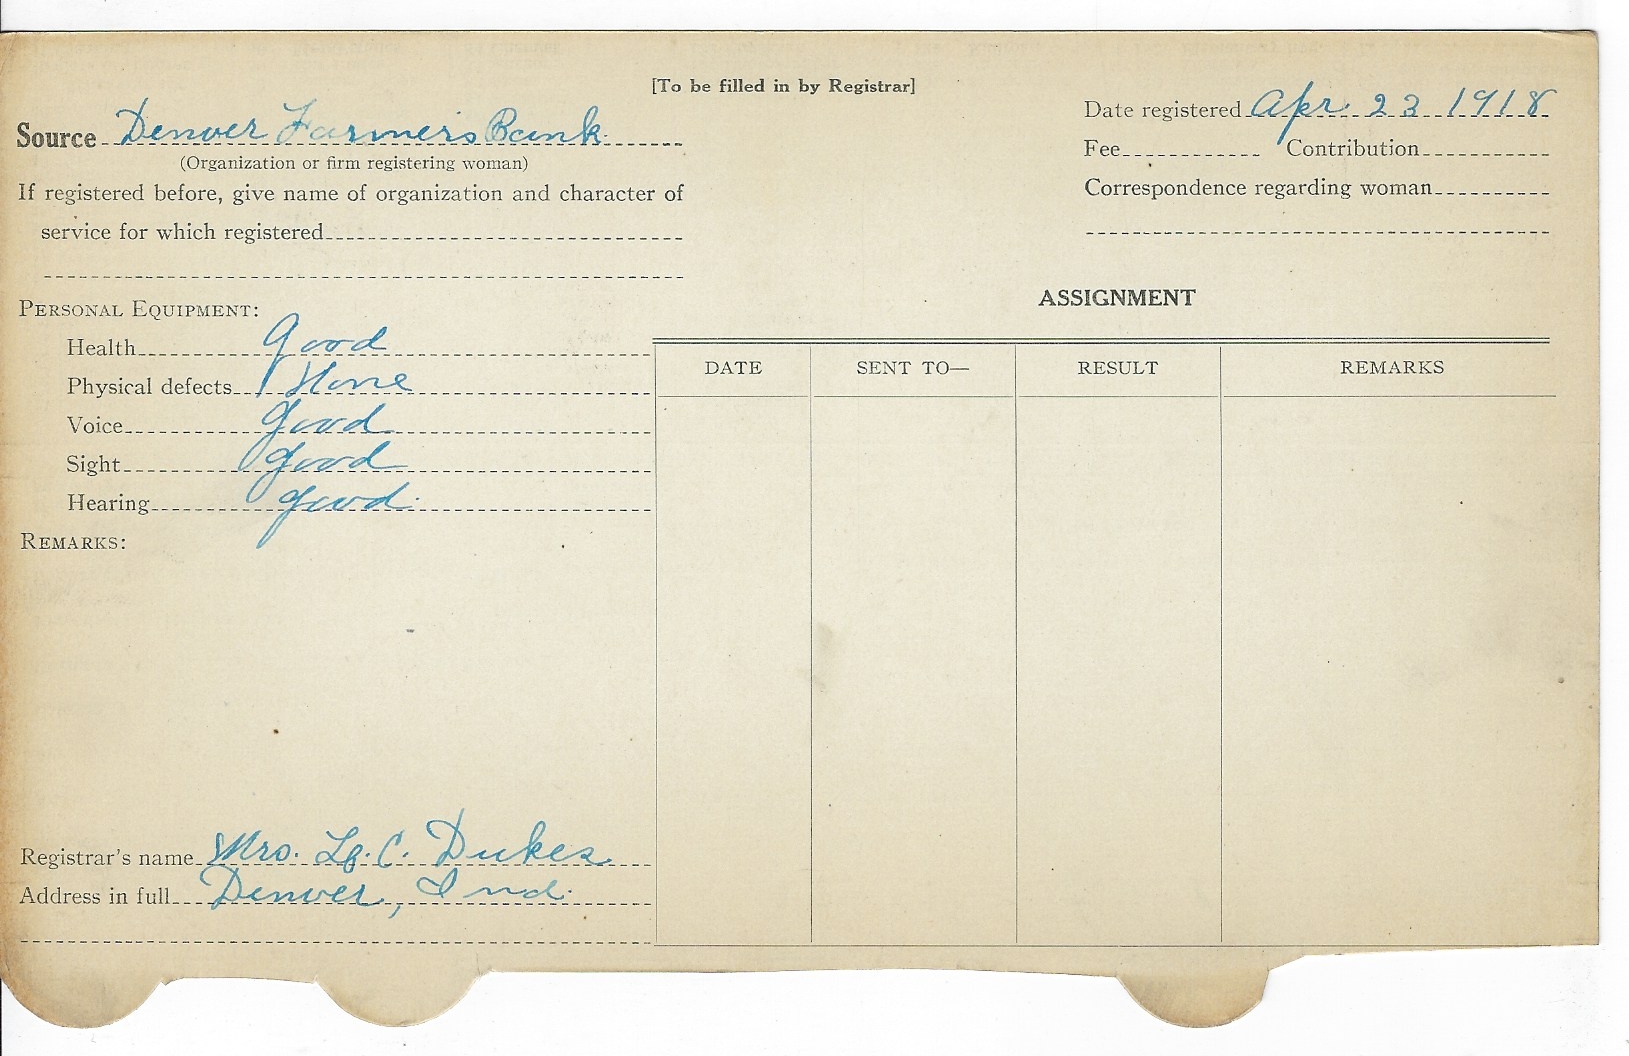 [To be filled in by Registrar]
Source Denver Farmers Bank.
(Organization or firm registering woman)
If registered before, give name of organization and character of
service for which registered
Date registered Apr. 23 1918
Fee Contribution
Correspondence regarding woman
PERSONAL EQUIPMENT:
Health Good
Physical defects None
Voice Good
Sight Good
Hearing good.
REMARKS:
Registrar's name Mrs. C. Dukes
Address in full Denver, Ind.
ASSIGNMENT
DATE SENT TO— RESULT REMARKS